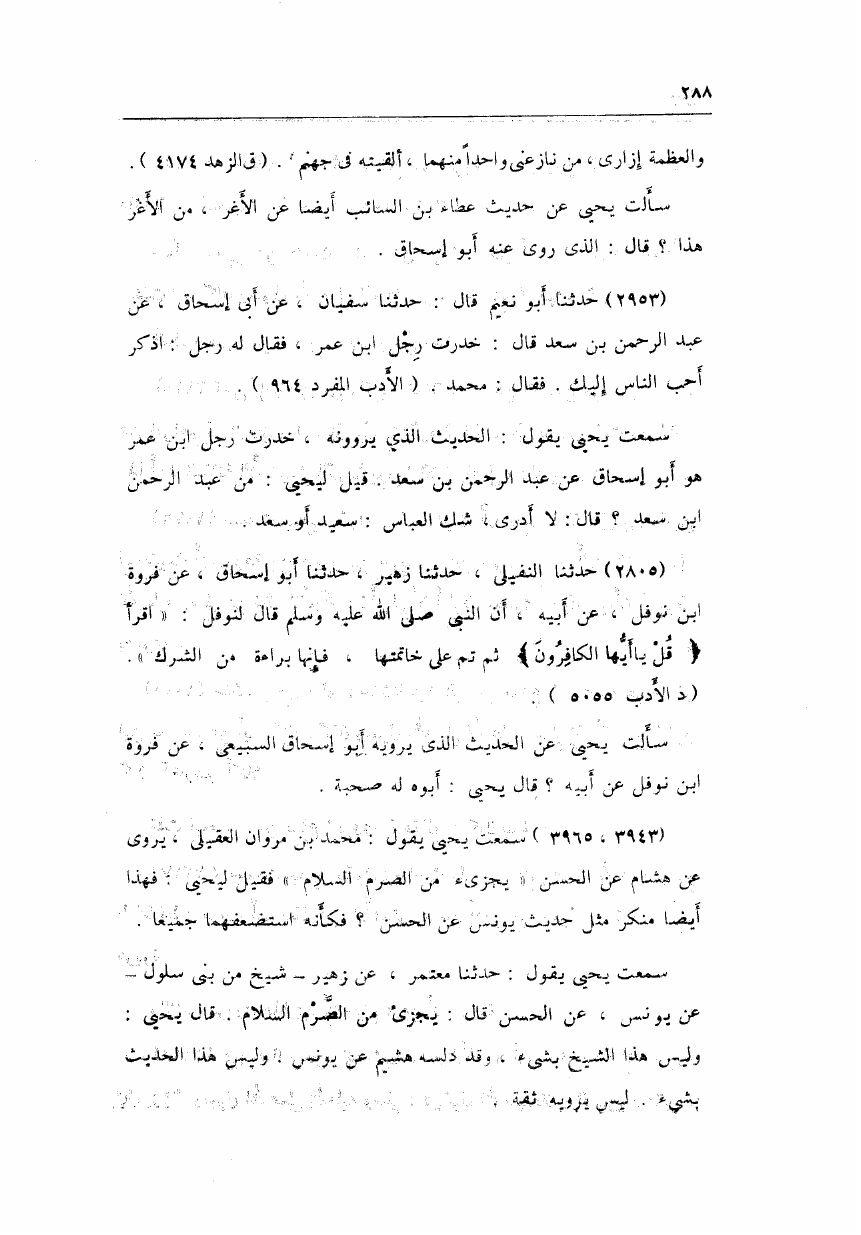 ٢٨٨
والعظمة إزارى ، من نازعنى واحداً منهما ، ألقيته فى جهنم » . ( ق الزهد ٤١٧٤ ) .
سألت يحيى عن حديث عطاء بن السائب أيضا عن الأغر ، من الأغر
هذا ؟ قال : الذى روى عنه أبو إسحاق .
(٢٩٥٣) حدثنا أبو نعيم قال : حدثنا سفيان ، عن أبى إسحاق ، عن
عبد الرحمن بن سعد قال : خدرت رِجْل ابن عمر ، فقال له رجل : اذكر
أحب الناس إليك . فقال : محمد . ( الأدب المفرد ٩٦٤ ) .
سمعت يحيى يقول : الحديث الذي يروونه ، خدرت رجل ابن عمر
هو أبو إسحاق عن عبد الرحمن بن سعد . قيل ليحيى : من عبد الرحمن
ابن سعد ؟ قال : لا أدرى ، شك العباس : سعيد أو سعد .
(٢٨٠٥) حدثنا النفيلى ، حدثنا زهير ، حدثنا أبو إسحاق ، عن فروة
ابن نوفل ، عن أبيه ، أن النبى صلى الله عليه وسلم قال لنوفل : « اقرأ
﴿ قُلْ ياأَيُّها الكافِرُونَ ﴾ ثم تم على خاتمتها ، فإنها براءة من الشرك » .
( د الأدب ٥٠٥٥ ) .
سألت يحيى عن الحديث الذى يرويه أبو إسحاق السبيعى ، عن فروة
ابن نوفل عن أبيه ؟ قال يحيى : أبوه له صحبة .
(٣٩٤٣ ، ٣٩٦٥ ) سمعت يحيى يقول : محمد بن مروان العقيلى ، يروى
عن هشام عن الحسن « يجزىء من الصرم السلام » فقيل ليحيى : فهذا
أيضا منكر مثل حديث يونس عن الحسن ؟ فكأنه استضعفهما جميعا .
سمعت يحيى يقول : حدثنا معتمر ، عن زهير – شيخ من بنى سلول –
عن يونس ، عن الحسن قال : يجزئ من الصَّرْم السلام . قال يحيى :
وليس هذا الشيخ بشىء ، وقد دلسه هشيم عن يونس ، وليس هذا الحديث
بشيء . ليس يرويه ثقة .